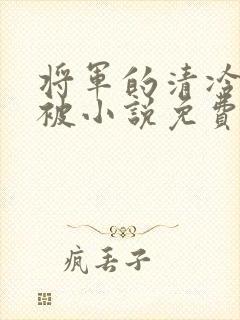 将军的清冷
被小说免费
疯丢子